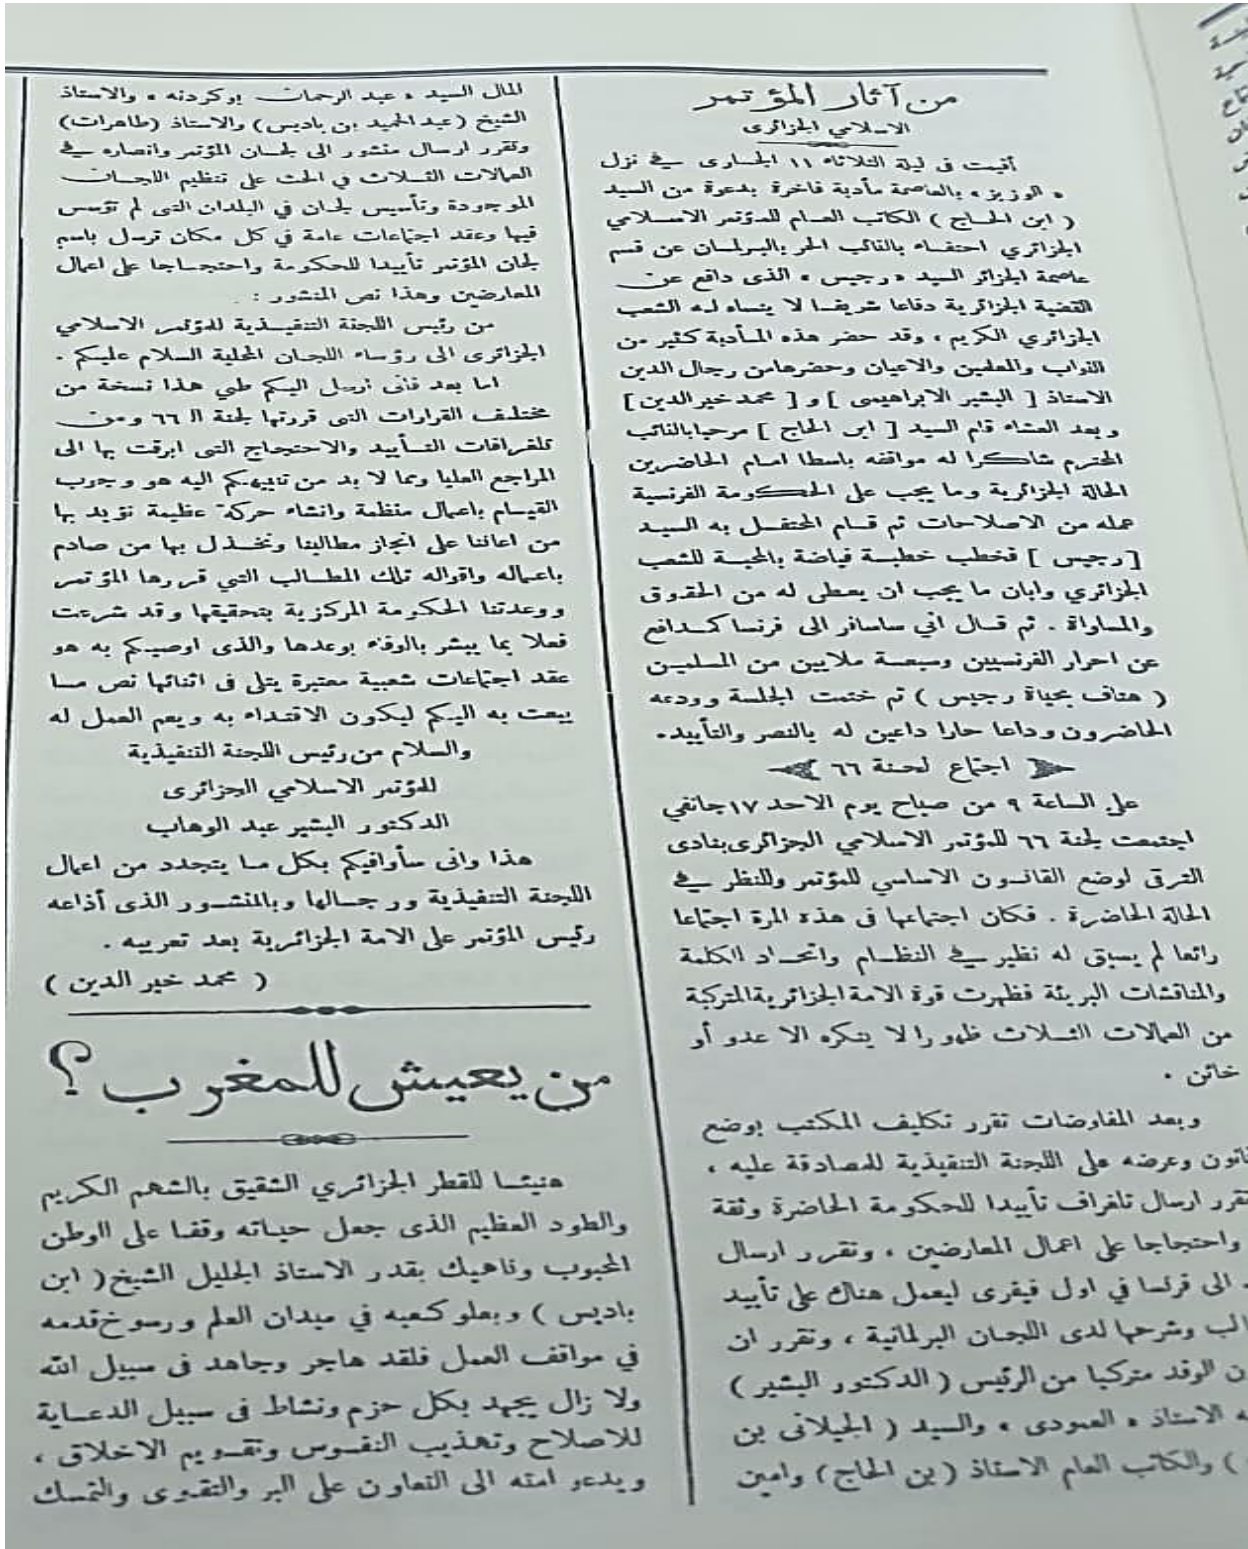 من آثار المؤتمر
الاسلامي الجزائرى
أقيمت فى ليلة الثلاثاء ١١ الجارى في نزل
« الوزيز » بالعاصمة مأدبة فاخرة بدعوة من السيد
( ابن الحاج ) الكاتب العام للمؤتمر الاسلامي
الجزائري احتفاء بالنائب الحر بالبرلمان عن قسم
عاصمة الجزائر السيد « رجيس » الذى دافع عن
القضية الجزائرية دفاعا شريفا لا ينساه له الشعب
الجزائري الكريم ، وقد حضر هذه المأدبة كثير من
النواب والمعلمين والاعيان وحضرها من رجال الدين
الاستاذ [ البشير الابراهيمى ] و [ محمد خير الدين ]
وبعد العشاء قام السيد [ ابن الحاج ] مرحبا بالنائب
المحترم شاكرا له مواقفه باسطا امام الحاضرين
الحالة الجزائرية وما يجب على الحكومة الفرنسية
عمله من الاصلاحات ثم قام المحتفل به السيد
[ رجيس ] فخطب خطبة فياضة بالمحبة للشعب
الجزائري وابان ما يجب ان يعطى له من الحقوق
والمساواة . ثم قال اني سأسافر الى فرنسا كمدافع
عن احرار الفرنسيين وسبعة ملايين من المسلمين
( هتاف بحياة رجيس ) ثم ختمت الجلسة وودعه
الحاضرون وداعا حارا داعين له بالنصر والتأييد.
اجتماع لجنة ٦٦
على الساعة ٩ من صباح يوم الاحد ١٧ جانفي
اجتمعت لجنة ٦٦ للمؤتمر الاسلامي الجزائرى بنادى
الترقى لوضع القانون الاساسي للمؤتمر وللنظر في
الحالة الحاضرة . فكان اجتماعها فى هذه المرة اجتماعا
رائعا لم يسبق له نظير في النظام واتحاد الكلمة
والمناقشات البريئة فظهرت قوة الامة الجزائرية المتركبة
من العمالات الثلاث ظهورا لا ينكره الا عدو أو
خائن .
وبعد المفاوضات تقرر تكليف المكتب بوضع
وعرضه على اللجنة التنفيذية للمصادقة عليه ،
ارسال تلغراف تأييدا للحكومة الحاضرة وثقة
واحتجاجا على اعمال المعارضين ، وتقرر ارسال
الى فرنسا في اول فيفرى ليعمل هناك على تأييد
وشرحها لدى اللجان البرلمانية ، وتقرر ان
الوفد متركبا من الرئيس ( الدكتور البشير )
الاستاذ « العمودى » والسيد ( الجيلانى بن
) والكاتب العام الاستاذ ( بن الحاج ) وامين
المال السيد « عبد الرحمان بوكردنه » والاستاذ
الشيخ (عبد الحميد بن باديس) والاستاذ (طاهرات)
وتقرر ارسال منشور الى لجان المؤتمر وانصاره في
العمالات الثلاث في الحث على تنظيم اللجان
الموجودة وتأسيس لجان في البلدان التى لم تؤسس
فيها وعقد اجتماعات عامة في كل مكان ترسل باسم
لجان المؤتمر تأييدا للحكومة واحتجاجا على اعمال
المعارضين وهذا نص المنشور :
من رئيس اللجنة التنفيذية للمؤتمر الاسلامي
الجزائرى الى رؤساء اللجان المحلية السلام عليكم .
اما بعد فانى ارسل اليكم طي هذا نسخة من
مختلف القرارات التى قررتها لجنة ال ٦٦ ومن
تلغرافات التأييد والاحتجاج التى ابرقت بها الى
المراجع العليا ومما لا بد من تنبيهكم اليه هو وجوب
القيام باعمال منظمة وانشاء حركة عظيمة نؤيد بها
من اعاننا على انجاز مطالبنا ونخذل بها من صادم
باعماله واقواله تلك المطالب التي قررها المؤتمر
ووعدتنا الحكومة المركزية بتحقيقها وقد شرعت
فعلا بما يبشر بالوفاء بوعدها والذى اوصيكم به هو
عقد اجتماعات شعبية معتبرة يتلى فى اثنائها نص ما
يبعث به اليكم ليكون الاقتداء به ويعم العمل له
والسلام من رئيس اللجنة التنفيذية
للمؤتمر الاسلامي الجزائرى
الدكتور البشير عبد الوهاب
هذا وانى سأوافيكم بكل ما يتجدد من اعمال
اللجنة التنفيذية ورجالها وبالمنشور الذى أذاعه
رئيس المؤتمر على الامة الجزائرية بعد تعريبه .
( محمد خير الدين )
من يعيش للمغرب ؟
هنيئا للقطر الجزائري الشقيق بالشهم الكريم
والطود العظيم الذى جعل حياته وقفا على الوطن
المحبوب وناهيك بقدر الاستاذ الجليل الشيخ ( ابن
باديس ) وبعلو كعبه في ميدان العلم ورسوخ قدمه
في مواقف العمل فلقد هاجر وجاهد فى سبيل الله
ولا زال يجهد بكل حزم ونشاط فى سبيل الدعاية
للاصلاح وتهذيب النفوس وتقويم الاخلاق ،
ويدعو امته الى التعاون على البر والتقوى والتمسك